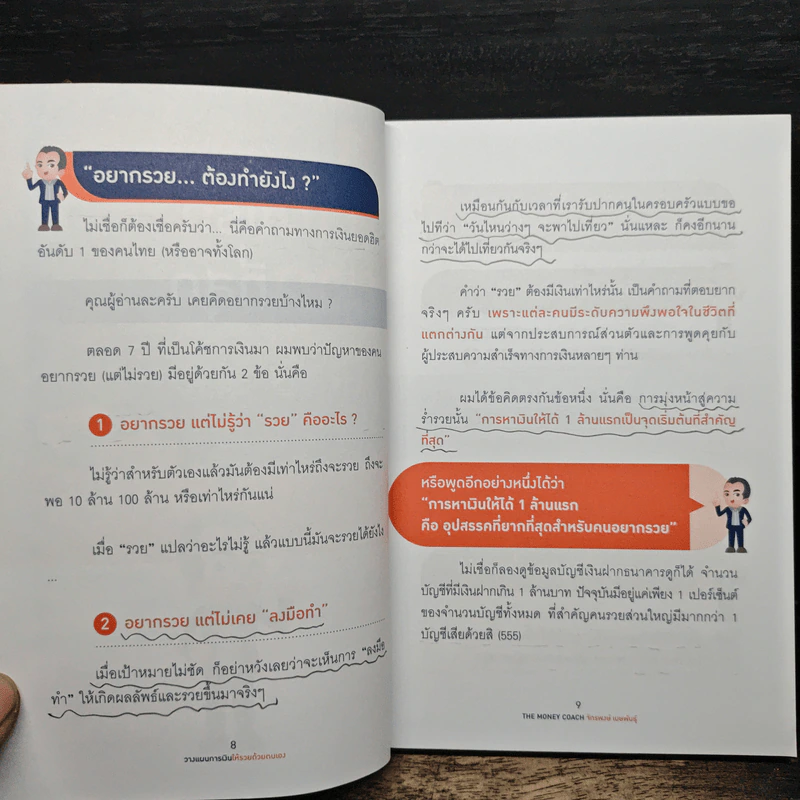 "อยากรวย... ต้องทำยังไง ?"
ไม่เชื่อก็ต้องเชื่อครับว่า... นี่คือคำถามทางการเงินยอดฮิต
อันดับ 1 ของคนไทย (หรืออาจทั้งโลก)
คุณผู้อ่านละครับ เคยคิดอยากรวยบ้างไหม ?
ตลอด 7 ปี ที่เป็นโค้ชการเงินมา ผมพบว่าปัญหาของคน
อยากรวย (แต่ไม่รวย) มีอยู่ด้วยกัน 2 ข้อ นั่นคือ
1 อยากรวย แต่ไม่รู้ว่า "รวย" คืออะไร ?
ไม่รู้ว่าสำหรับตัวเองแล้วมันต้องมีเท่าไหร่ถึงจะรวย ถึงจะ
พอ 10 ล้าน 100 ล้าน หรือเท่าไหร่กันแน่
เมื่อ "รวย" แปลว่าอะไรไม่รู้ แล้วแบบนี้มันจะรวยได้ยังไง
...
2 อยากรวย แต่ไม่เคย "ลงมือทำ"
เมื่อเป้าหมายไม่ชัด ก็อย่าหวังเลยว่าจะเห็นการ "ลงมือ
ทำ" ให้เกิดผลลัพธ์และรวยขึ้นมาจริงๆ
8
วางแผนการเงินให้รวยด้วยตนเอง
เหมือนกันกับเวลาที่เรารับปากคนในครอบครัวแบบขอ
ไปทีว่า "วันไหนว่างๆ จะพาไปเที่ยว" นั่นแหละ ก็คงอีกนาน
กว่าจะได้ไปเที่ยวกันจริงๆ
คำว่า "รวย" ต้องมีเงินเท่าไหร่นั้น เป็นคำถามที่ตอบยาก
จริงๆ ครับ เพราะแต่ละคนมีระดับความพึงพอใจในชีวิตที่
แตกต่างกัน แต่จากประสบการณ์ส่วนตัวและการพูดคุยกับ
ผู้ประสบความสำเร็จทางการเงินหลายๆ ท่าน
ผมได้ข้อคิดตรงกันข้อหนึ่ง นั่นคือ การมุ่งหน้าสู่ความ
ร่ำรวยนั้น "การหาเงินให้ได้ 1 ล้านแรกเป็นจุดเริ่มต้นที่สำคัญ
ที่สุด"
หรือพูดอีกอย่างหนึ่งได้ว่า
"การหาเงินให้ได้ 1 ล้านแรก
คือ อุปสรรคที่ยากที่สุดสำหรับคนอยากรวย"
ไม่เชื่อก็ลองดูข้อมูลบัญชีเงินฝากธนาคารดูก็ได้ จำนวน
บัญชีที่มีเงินฝากเกิน 1 ล้านบาท ปัจจุบันมีอยู่แค่เพียง 1 เปอร์เซ็นต์
ของจำนวนบัญชีทั้งหมด ที่สำคัญคนรวยส่วนใหญ่มีมากกว่า 1
บัญชีเสียด้วยสิ (555)
9
THE MONEY COACH จักรพงษ์ เมษพันธุ์